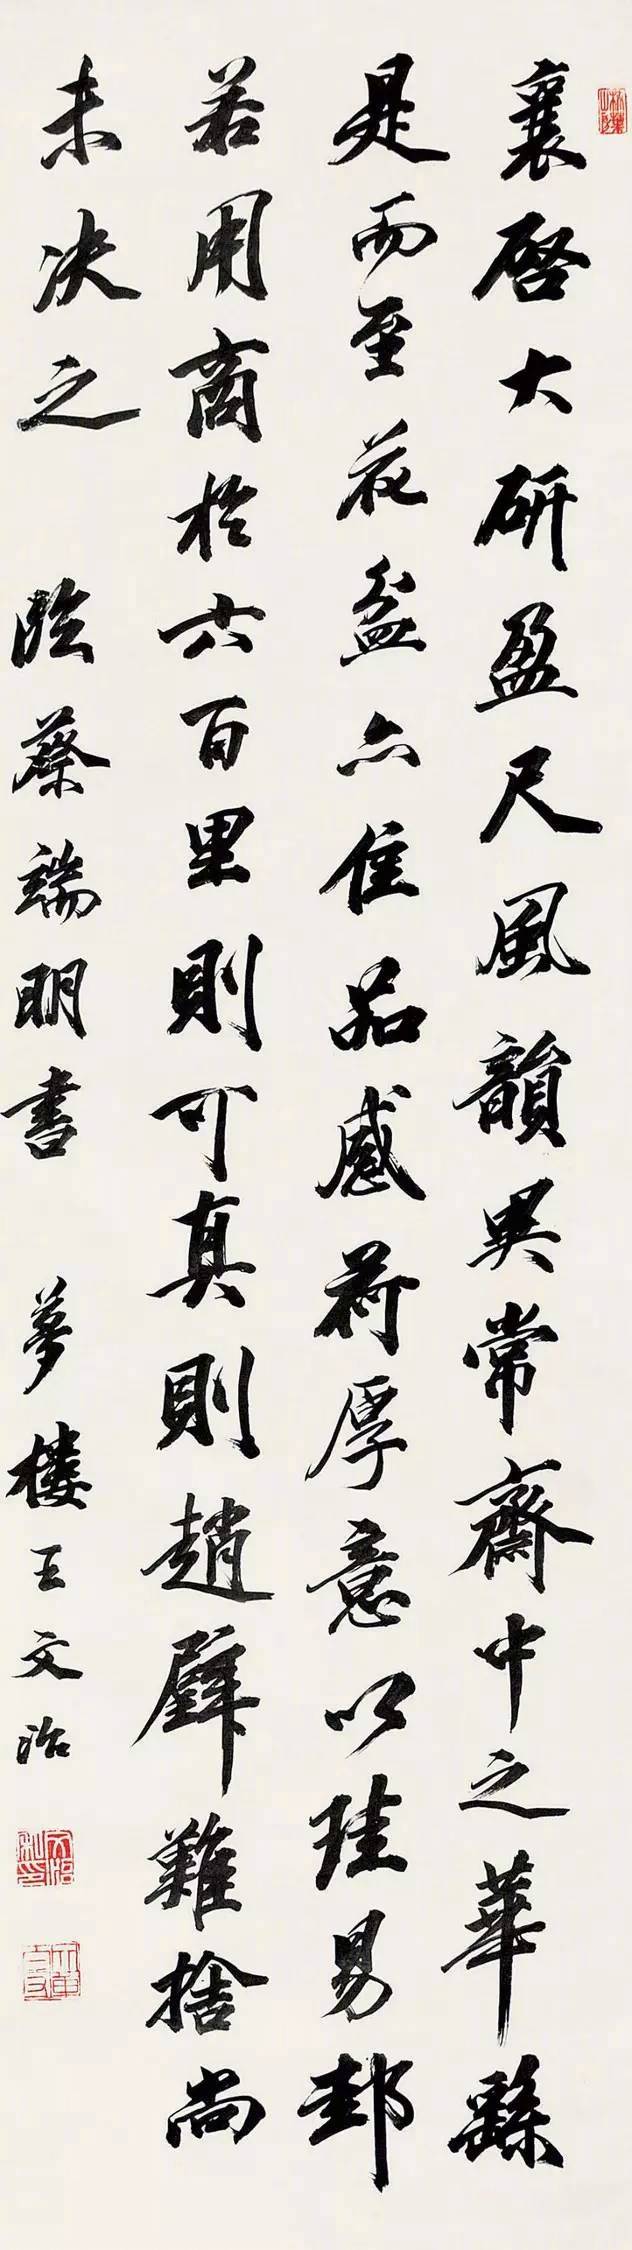 襄啓大研盈尺風韻異常齋中之華繇
是而至花盆亦佳品感荷厚意以珪易邽
若用商於六百里則可真則趙璧難捨尚
未决之 臨蔡端明書 夢樓王文治
文治私印